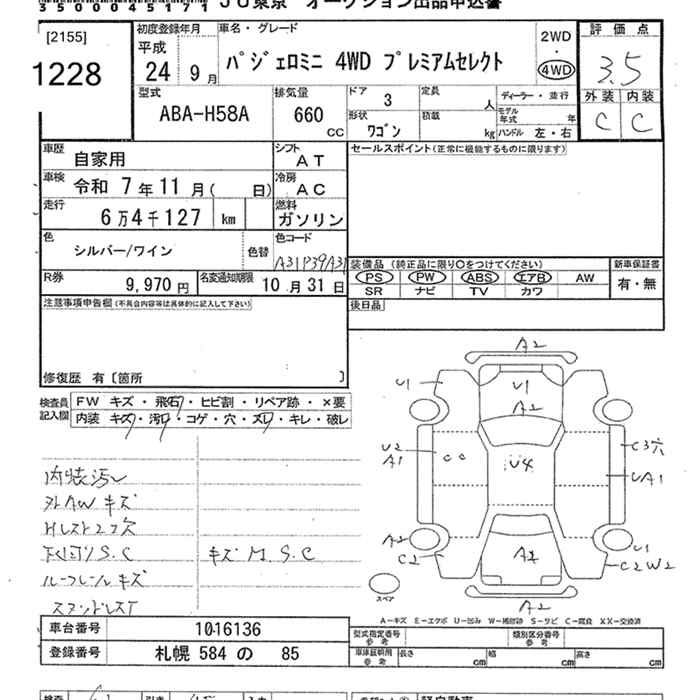 350004517₁ JU東京 オークション出品申込書
[2155]
1228
初度登録年月 平成 24 9月
車名・グレード パジェロミニ 4WD プレミアムセレクト
2WD ・ 4WD
評価点 3.5
外装 内装
C C
型式 ABA-H58A
排気量 660 CC
ドア 3
形状 ワゴン
定員 人
積載 kg
ディーラー・並行
モデル年式 年
ハンドル 左・右
車歴 自家用
シフト AT
セールスポイント(正常に機能するものに限ります)
車検 令和 7年11月( 日)
冷房 AC
走行 6万4千127 km
燃料 ガソリン
色 シルバー/ワイン
色替
色コード A31P39A31
R券 9,970円
名変通知期限 10月31日
装備品 (純正品に限り〇をつけてください)
PS PW ABS エアB AW
SR ナビ TV カワ
新車保証書 有・無
注意事項申告欄(不具合内容等は具体的に記入して下さい)
後日品
修復歴 有〔箇所 〕
検査員記入欄
FW キズ・飛石・ヒビ割・リペア跡・×要
内装 キズ・汚レ・コゲ・穴・スレ・キレ・破レ
内装汚レ
外AWキズ
下廻りS.C
キズM.S.C
ルーフレールキズ
A2
U1
U1
A2
U2
A1
CC
U4
C3穴
UA1
A2
C2
U1
C2W2
A2
スペア
A-キズ E-エクボ U-凹み W-補修跡 S-サビ C-腐食 XX-交換済
車台番号 1016136
登録番号 札幌 584 の 85
型式指定番号 参考
類別区分番号 参考
車庫証明用 参考
長さ cm 幅 cm 高さ cm